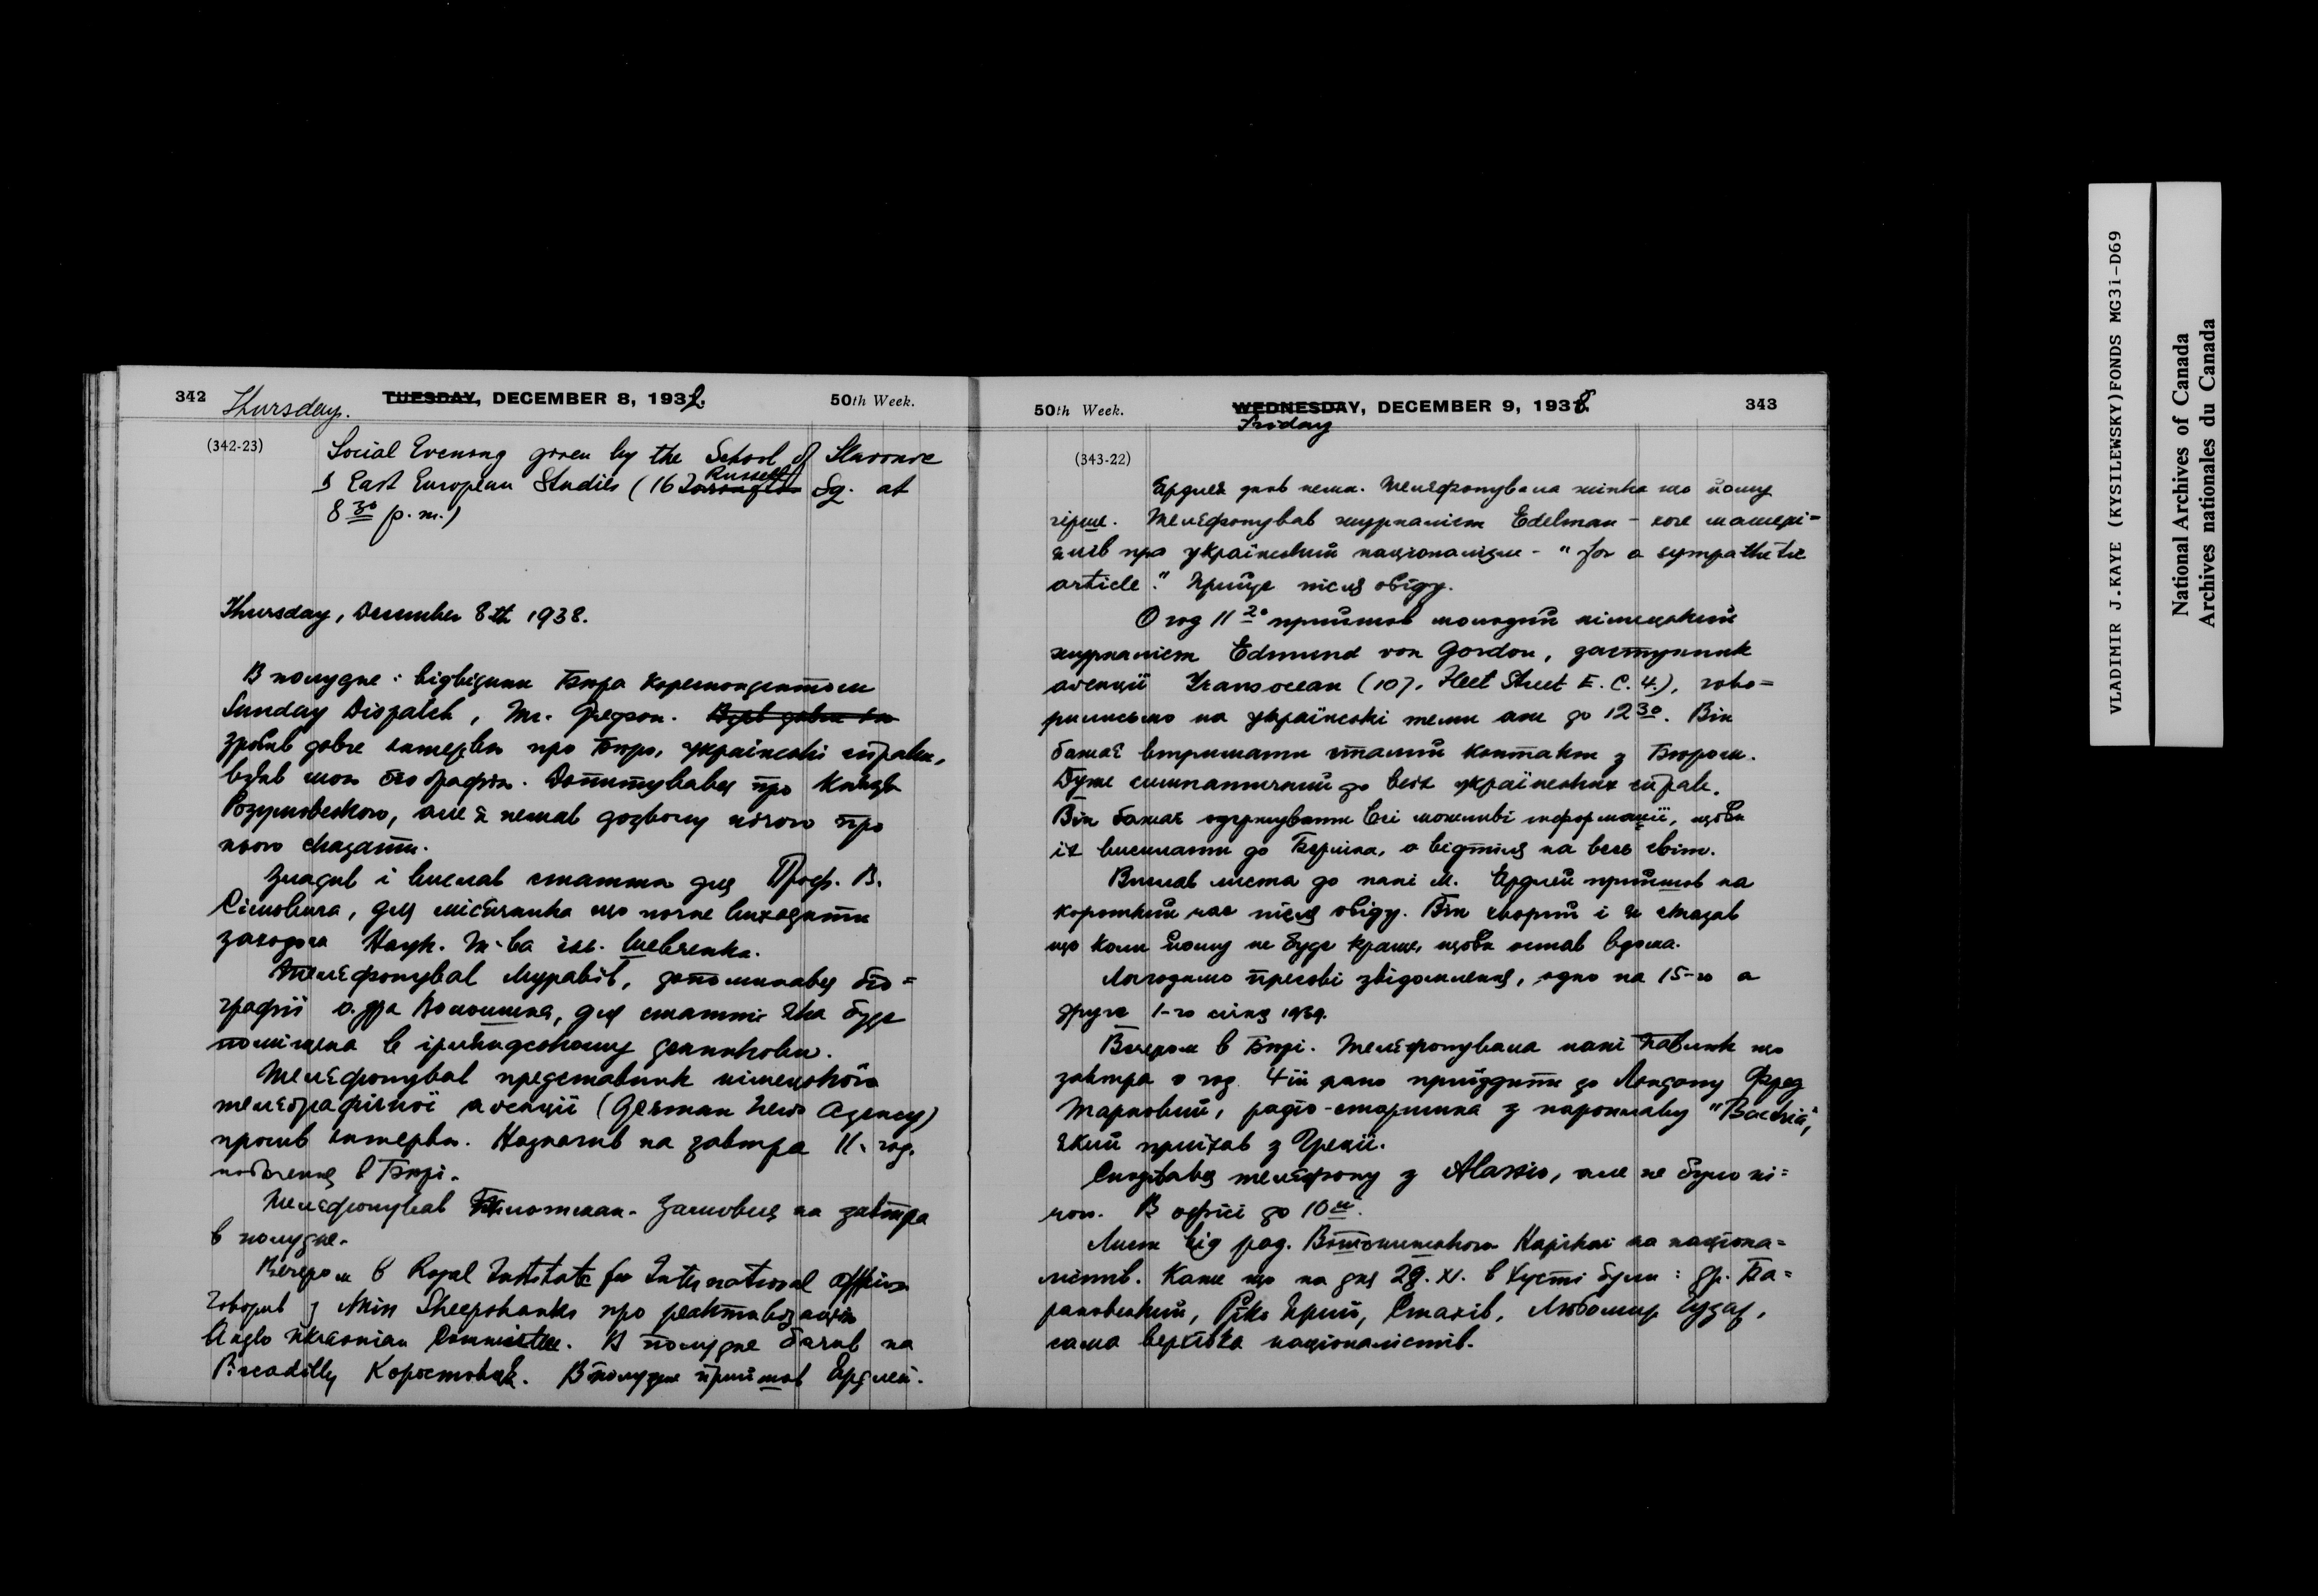 342 Thursday. TUESDAY, DECEMBER 8, 1938. 50th Week.
(342-23) Social Evening given by the School of Slavonic
& East European Studies (16 Torrington Russell Sq. at
8 30 p.m.)
Thursday, December 8th 1938.
В полудне: відвідини Бюра кореспондентом
Sunday Dispatch, Mr. Gregson.
зробив довге інтервю про Бюро, українські справи,
взяв мою біографію. Допитувався про Князя
Розумовського, але я немав дозволу нічого про
нього сказати.
Зладив і вислав статтю для Проф. В.
Сімовича, для місячника що почне виходити
заходом Наук. Т-ва ім. Шевченка.
Телєфонував Муравів, допоминався біо=
графії о. дра Волошина, для статті яка буде
поміщена в ірляндському денникови.
Телєфонував представник німецької
телєграфічної агенції (German News Agency)
просив інтервю. Назначив на завтра 11. год.
побачення в Бюрі.
Телєфонував
в полудне.
Вечером в Royal Institute for International Affairs
Говорив з Miss Sheepshanks про реактивізацію
Anglo Ukrainian Committee. В полудне бачив на
Piccadilly Коростовця. В полудне прийшов Ердлей.
50th Week. WEDNESDAY, DECEMBER 9, 1938. 343
Friday
(343-22)
Ердлея днов нема. Телєфонувала жінка що йому
гірше. Телєфонував журналіст Edelman – хоче матері=
ялів про український націоналізм – "for a sympathetic
article." Прийде після обіду.
О год 11 20 прийшов молодий німецький
журналіст Edmund von Gordon, заступник
агенції Transocean (107, Fleet Street E. C. 4.), гово=
рилисьмо на українські теми аж до 12 30. Він
бажає втримати сталий контакт з Бюром.
Дуже симпатичний до всіх українських справ.
Він бажає одержувати всі можливі інформації, щоби
їх висилати до Берліна, а відтіля на весь світ.
Вислав листа до пані М. Ердлей прийшов на
короткий час після обіду. Він хворий і я сказав
що коли йому не буде краще, щоби остав вдома.
Лагодимо пресові звідомлення, одно на 15-го а
друге 1-го січня 1939.
Вечером в Бюрі. Телєфонувала пані Павлик що
завтра о год. 4ій рано приїздить до Лондону Фред
Тарновий, радіо-старшина з корабля "Bactria",
який приїхав з Греції.
Сподівався телєфону з Alassio, але не було ні=
чого. В офісі до 10
Лист від рад. Вітошинського Нарікає на націона=
лістів. Каже що на дня 29. XI. в Хусті були: др. Ба=
рановський, Ріко Ярий, Стахів, Любомир Гузар,
сама верхівка націоналістів.
VLADIMIR J.KAYE (KYSILEWSKY)FONDS MG31-D69
National Archives of Canada
Archives nationales du Canada